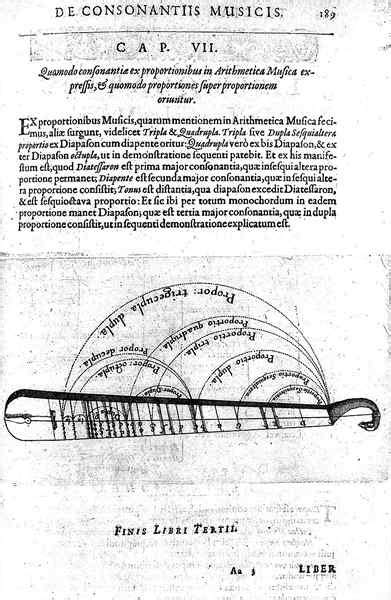 DE CONSONANTIIS MUSICIS. 189
CAP. VII.
Quomodo consonantiæ ex proportionibus in Arithmetica Musica ex-
pressis, & quomodo proportiones super proportionem
oriuntur.
EX proportionibus Musicis, quarum mentionem in Arithmetica Musica feci-
mus, aliæ surgunt, videlicet Tripla & Quadrupla. Tripla sive Dupla Sesquialtera
proportio ex Diapason cum diapente oritur: Quadrupla verò ex bis Diapason, & ex
ter Diapason octupla, ut in demonstratione sequenti patebit. Et ex his manife-
stum est, quod Diatessaron est prima major consonantia, quæ in sesquialtera pro-
portione permanet; Diapente est secunda major consonantia, quæ in sesquialte-
ra proportione consistit; Tonus est distantia, qua diapason excedit Diatessaron,
& est sesquioctava proportio: Et sic ibi per totum monochordum in eadem
proportione manet Diapason; quæ est tertia major consonantia, quæ in dupla
proportione consistit, ut in sequenti demonstratione explicatum est.
Propor: trigecupla dupla.
Proportio quadrupla.
Proportio tripla.
Propor: decupla.
Propor: octupla.
Proportio dupla
FINIS LIBRI TERTII.
Aa 3 LIBER